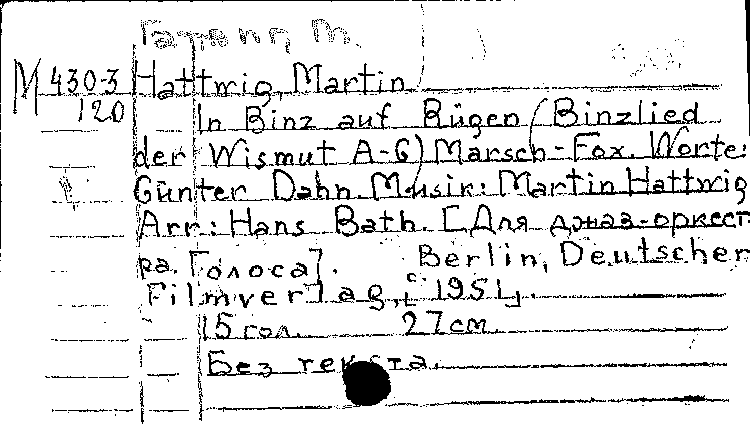 М 430-3 Hattwig, Martin
120 In Binz auf Rügen (Binzlied
der Wismut A-G) Marsch-Fox. Worte:
Günter Dahn. Musik: Martin Hattwig
Arr: Hans Bath. [Для джаз-оркест
ра. Голоса]. Berlin, Deutscher
Filmverlag, [c. 1951].
15 гол. 27 cm.
Без текста.